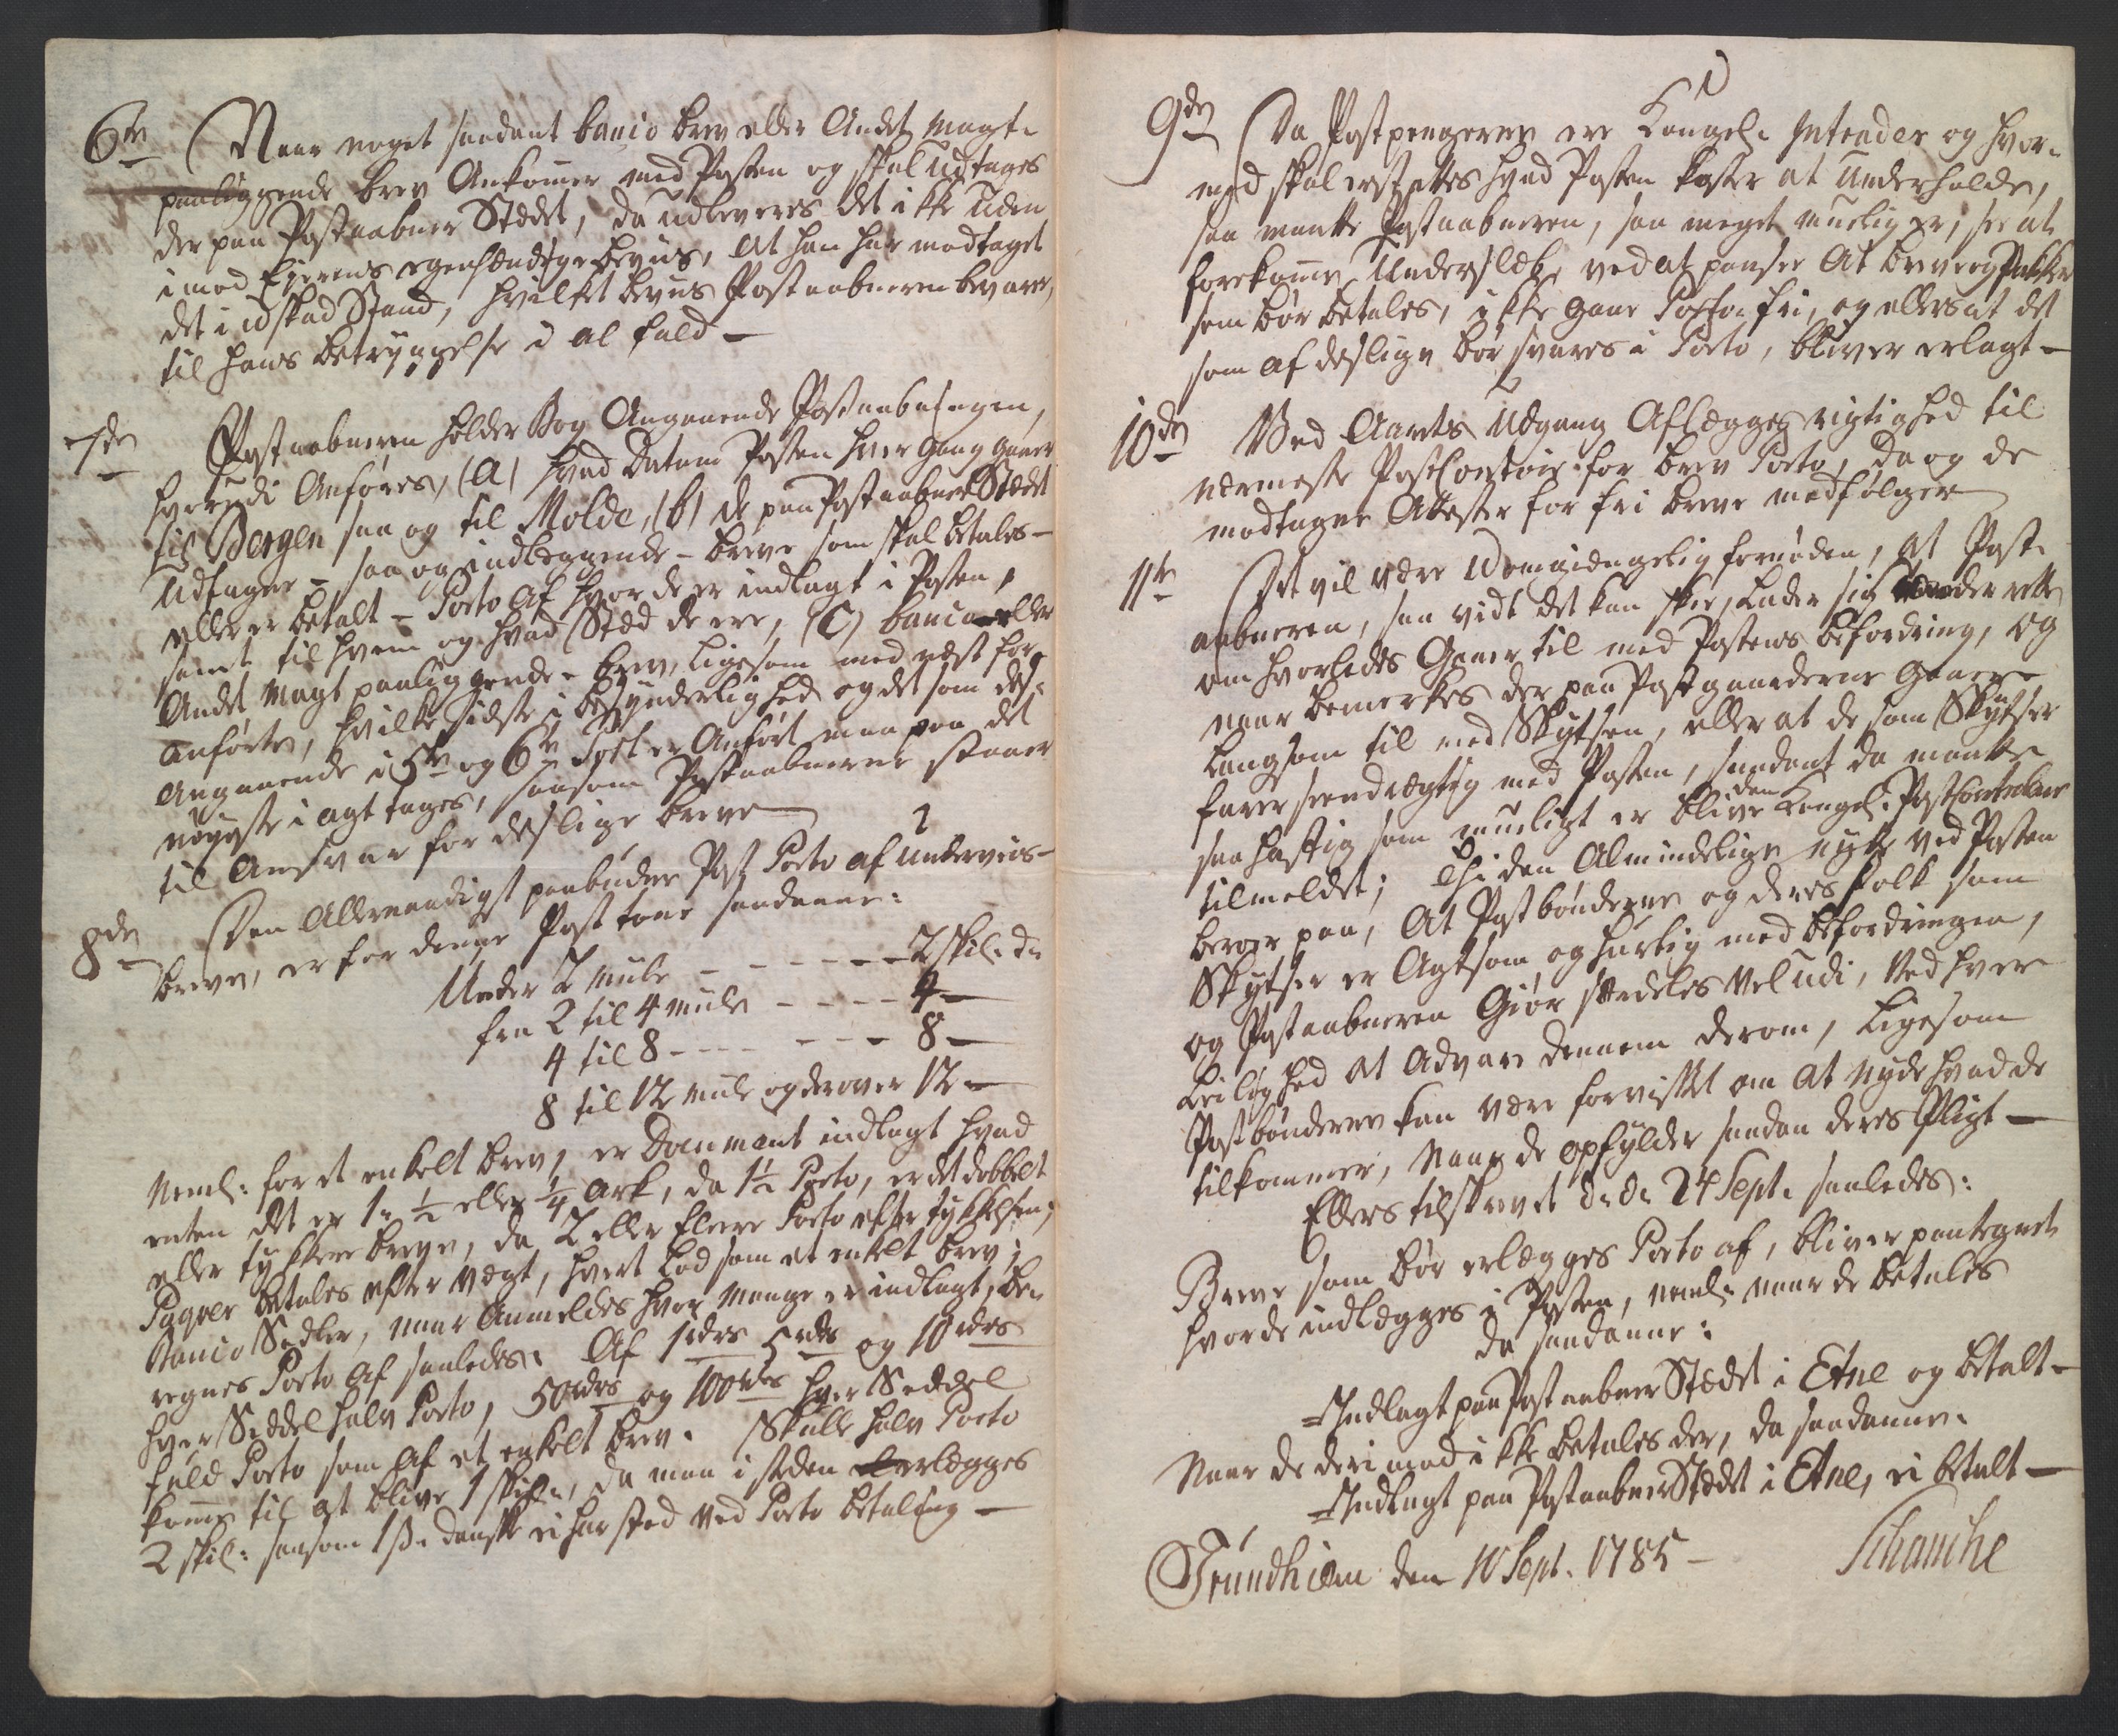 6te Naar noget saadant banco brev eller Andet Magt-
paaliggende brev Ankommer med Posten og skal udtages
der paa Postaabner Stædet, da udleveres det ikke uden
imod Ejerens egenhændige beviis, at han har modtaget
det i uskad Stand, hvilket beviis Postaabneren bevarer,
til hans betryggelse i al fald -
7de Postaabneren holder Bog Angaaende Postaabningen,
hvorudi Anføres, (a) hvad Datum Posten hver gang gaaer
til Bergen saa og til Molde, (b) de paa Postaabner Stædet
Udtagne - saa og indleggende - breve som skal betales -
eller er betalt - Porto af hvor de er indlagt i Posten,
samt til hvem og hvad Stæd de ere, (c) banco eller
Andet Magt paaliggende - brev, ligesom med næst for
anførte, hvilke sidste i besynderlighed og det som des-
angaaende i 5te og 6te Post er Anført maa paa det
nøyeste i agt tages, saasom Postaabnerne staaer
til Ansvar for deslige breve
8de Den Allernaadigst paabudne Post Porto af underveis-
breve, er for denne Post tour saadanne:
Under 2 Mile - - - - - - 2 skil. d.
fra 2 til 4 Mile - - - - 4 -
4 til 8 - - - - - - 8 -
8 til 12 Mile og derover 12 -
Neml: for et enkelt brev, er Document indlagt hvad
enten det er 1. ½ eller ¼ Ark, da 1½ Porto, er det dobbelt
eller tykkere breve, da 2 eller flere Porto efter tykkelsen;
Paqver betales efter vægt, hvert Lod som et enkelt brev;
Banco Sedler, naar Anmeldes hvor mange er indlagt, be-
regnes Porto af saaledes: Af 1rdrs 5rdrs og 10rdrs
hver Seddel halv Porto, 50rdrs og 100rdrs hver Seddel
fuld Porto som af et enkelt brev. Skulle halv Porto
komme til at blive 1 skil., da maa i steden erlægges
2 skil: saasom 1 ß. dansk ei har sted ved Porto betaling -
9de Da Postpengerne ere Kongel. Intrader og hvor-
med skal erstattes hvad Posten koster at underholde,
saa maatte Postaabneren, saa meget muelig er, see at
forekomme Underslæb, ved at passe At breve og Pakker
som bør betales, ikke gaar Porto fri, og ellers at det
som af deslige bør svares i Porto, bliver erlagt -
10de Ved Aarets Udgang Aflægges rigtighed til
nærmeste PostContoir for brev Porto, da og de
modtagne Attester for fri breve medfølger
11te Det vil være Uomgiængelig fornøden, at Post-
aabneren, saa vidt det kan skee, lader sig underrette
om hvorledes Gaaer til med Postens befordring, og
naar bemerkes der paa Postgaarderne Gaaer
langsom til med Skytsen, eller at de som Skytser
farer seendrægtig med Posten, saadant da maatte
saa hastig som mueligt er blive den Kongel. PostContoleur
tilmeldet; Thi den Almindelige nytte ved Posten
beroer paa, At Postbønderne og deres folk som
Skytser er Agtsom og hurtig med befordringen,
og Postaabneren Giør særdeles vel udi, Ved hver
Leilighed at Advare dennem derom, ligesom
Postbønderne kan være forvisset om at nyde hvad de
tilkommer, Naar de opfylder saadan deres Pligt -
Ellers tilskrevet d. d. 24 Sept. saaledes:
Breve som bør erlægges Porto af, bliver paategnet
hvor de indlægges i Posten, neml: naar de betales
da saadanne:
Indlagt paa Postaabner Stædet i Etne og betalt -
Naar de derimod ikke betales der, da saadanne.
Indlagt paa Postaabner Stædet i Etne, ei betalt -
Trundhiem den 10 Sept. 1785 - Schanche